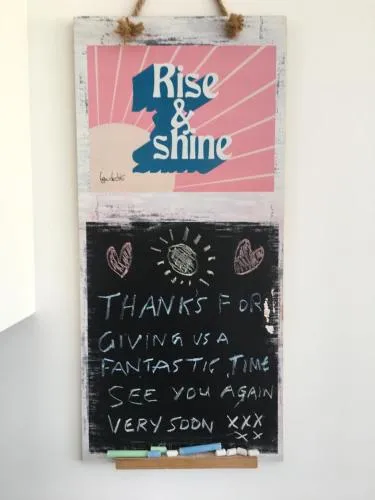 Rise
&
shine
THANK'S FOR
GIVING US A
FANTASTIC TIME
SEE YOU AGAIN
VERY SOON XXX
XX